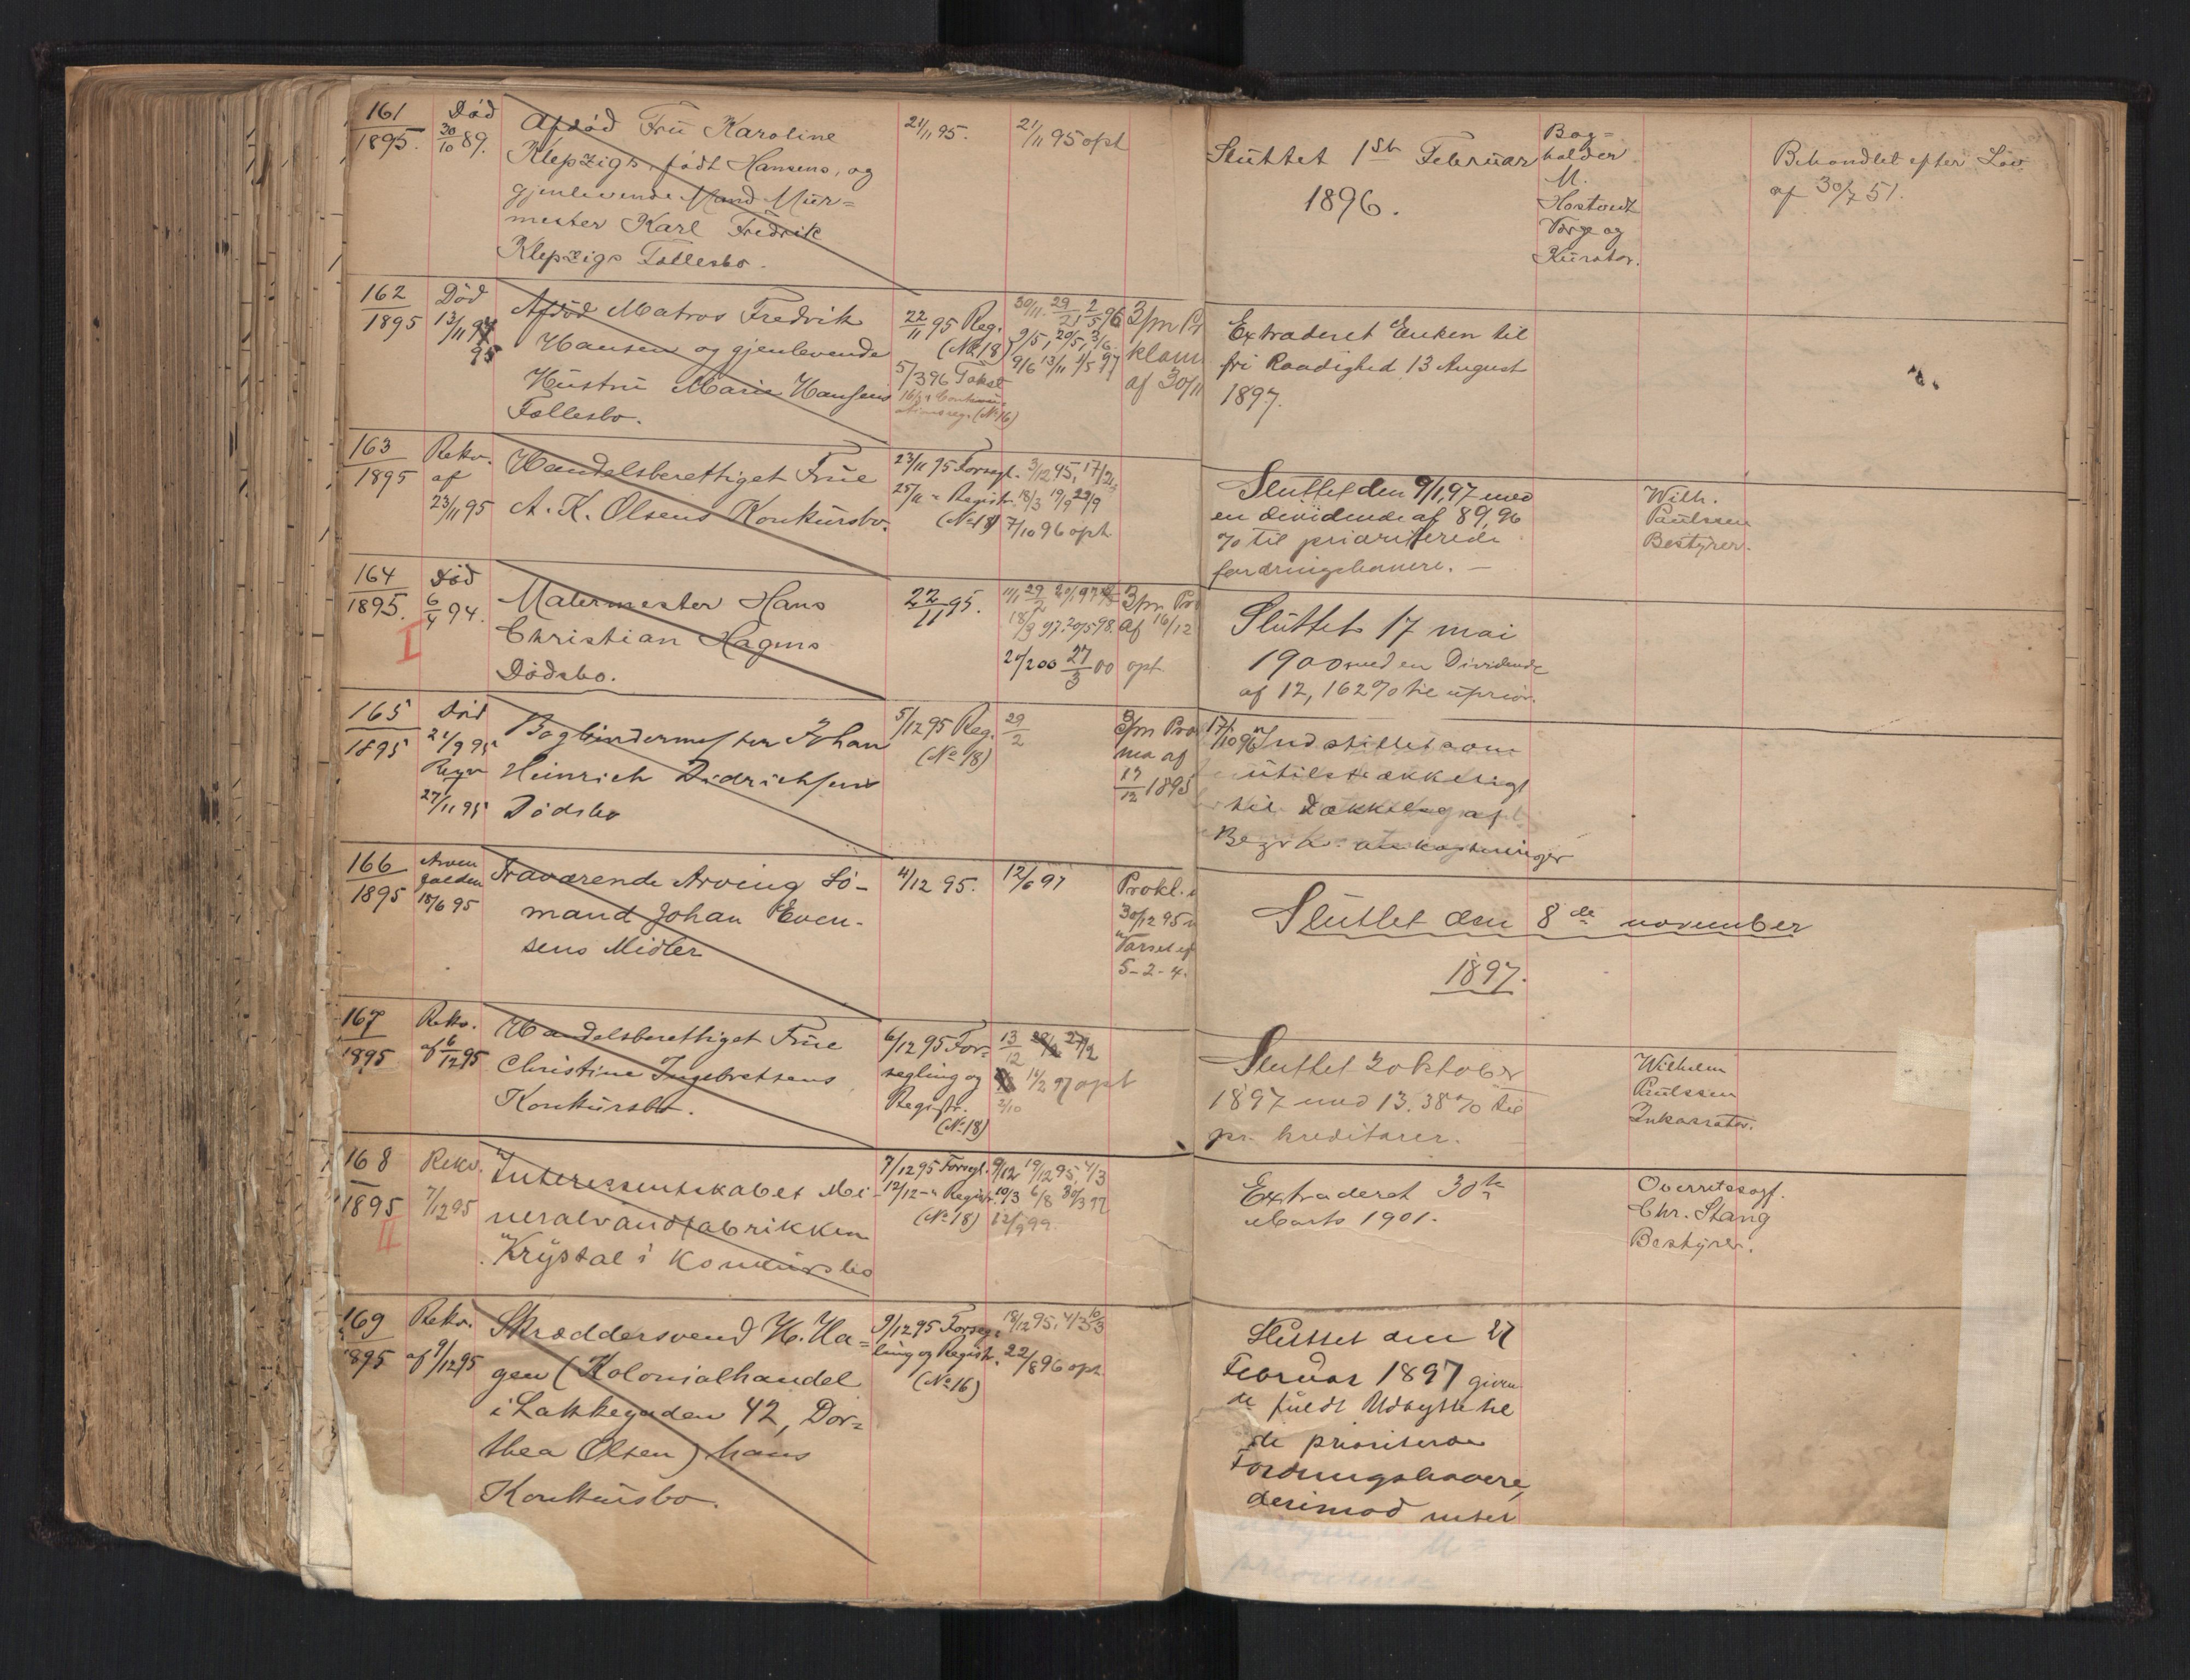 161
1895.
Død
30/10 89.
Afdød Frü Karoline
Klepzigs, født Hansens, og
gjenlevende Mand Mür=
mester Karl Fredrik
Klepzigs Fællesbo.
21/11 95.
21/11 95 opt
Slüttet 1ste Februar
1896.
Bog=
holder
M.
Hostvedt
Værge og
Kürator.
Behandlet efter Lov
af 30/7 51.
162
1895
Død
13/11
95
Afdød Matros Fredrik
Hansen og gjenlevende
Hüstrü Marie Hansens
Fællesbo.
22/11 95 Reg.
(No 18)
5/3 96 Takst
(No 16)
30/11.
9/5, 20/5, 3/6.
9/6 13/11 1/5 97
3/m Pr
klam
af 30/11
Extraderet Enken til
fri Raadighed 13 August
1897.
163
1895
Rekv.
af
23/11 95
Handelsberettiget Früe
A. K. Olsens Konkürsbo.
23/11 95 Forsegl.
25/11 " Registr.
(No 18)
3/12 95, 17/2,
18/3 19/9 29/9
7/10 96 opt.
Slüttet den 9/1, 97 med
en devidende af 89,96
% til prioriterede
fordringshavere. —
Wilh.
Paülssen
Bestÿrer.
164
1895.
Død
6/4 94.
I
Malermester Hans
Christian Hagens
Dødsbo.
22/11 95.
3/m Pro
af 16/12
27/3 00 opt.
Slüttet 17 mai
1900 med en Dividende
af 12,162 % til üprior.
165
1895
Død
21/9 95
Regv
27/11 95
Bogbindermester Johan
Heinrich Didrichsens
Dødsbo
5/12 95 Reg.
(No 18)
29/2
3/m Pro
ma af
17/12 1895
17/10 96 Indstillet som
ütilstrækkeligt
til Dækkelse af
omkostninger
166
1895
Arven
falden
18/6 95
Fraværende Arving Sø-
mand Johan Even-
sens Midler
4/12 95.
12/6 97
Prokl.
30/12 95
Varsel ef
5-2-4.
Slüttet den 8de november
1897.
167
1895
Rekv.
af 6/12 95
Handelsberettiget Früe
Christine Ingebretsens
Konkürsbo.
6/12 95 For=
segling og
Registr.
(No 18)
13/12
14/2 97 opt
2/10
Slüttet 2 oktober
1897 med 13.38 % til
pr. kreditorer.
Wilhelm
Paülssen
Inkassator.
168
1895
II
Rekv.
7/12 95
Interessentskabet Mi-
neralvandfabrikken
"Krÿstal" i Konkürsbo
7/12 95 Forsegl.
12/12 - " Registr.
(No 18)
9/12 19/12 95, 4/3
10/3 6/8 30/3 97
12/9 99.
Extraderet 30te
Marts 1901.
Overretssagf.
Chr. Stang
Bestÿrer.
169
1895
Rekv.
af 9/12 95
Skræddersvend H. Ha=
gen (Kolonialhandel
i Lakkegaden 42, Dor=
thea Olsen) hans
Konkürsbo.
9/12 95 Forseg=
ling og Registr.
(No 16)
19/12 95, 4/3 10/3
22/8 96 opt.
Slüttet den 27
Februar 1897 given
de füldt Udbytte til
de prioriterede
Fordringshavere,
derimod intet